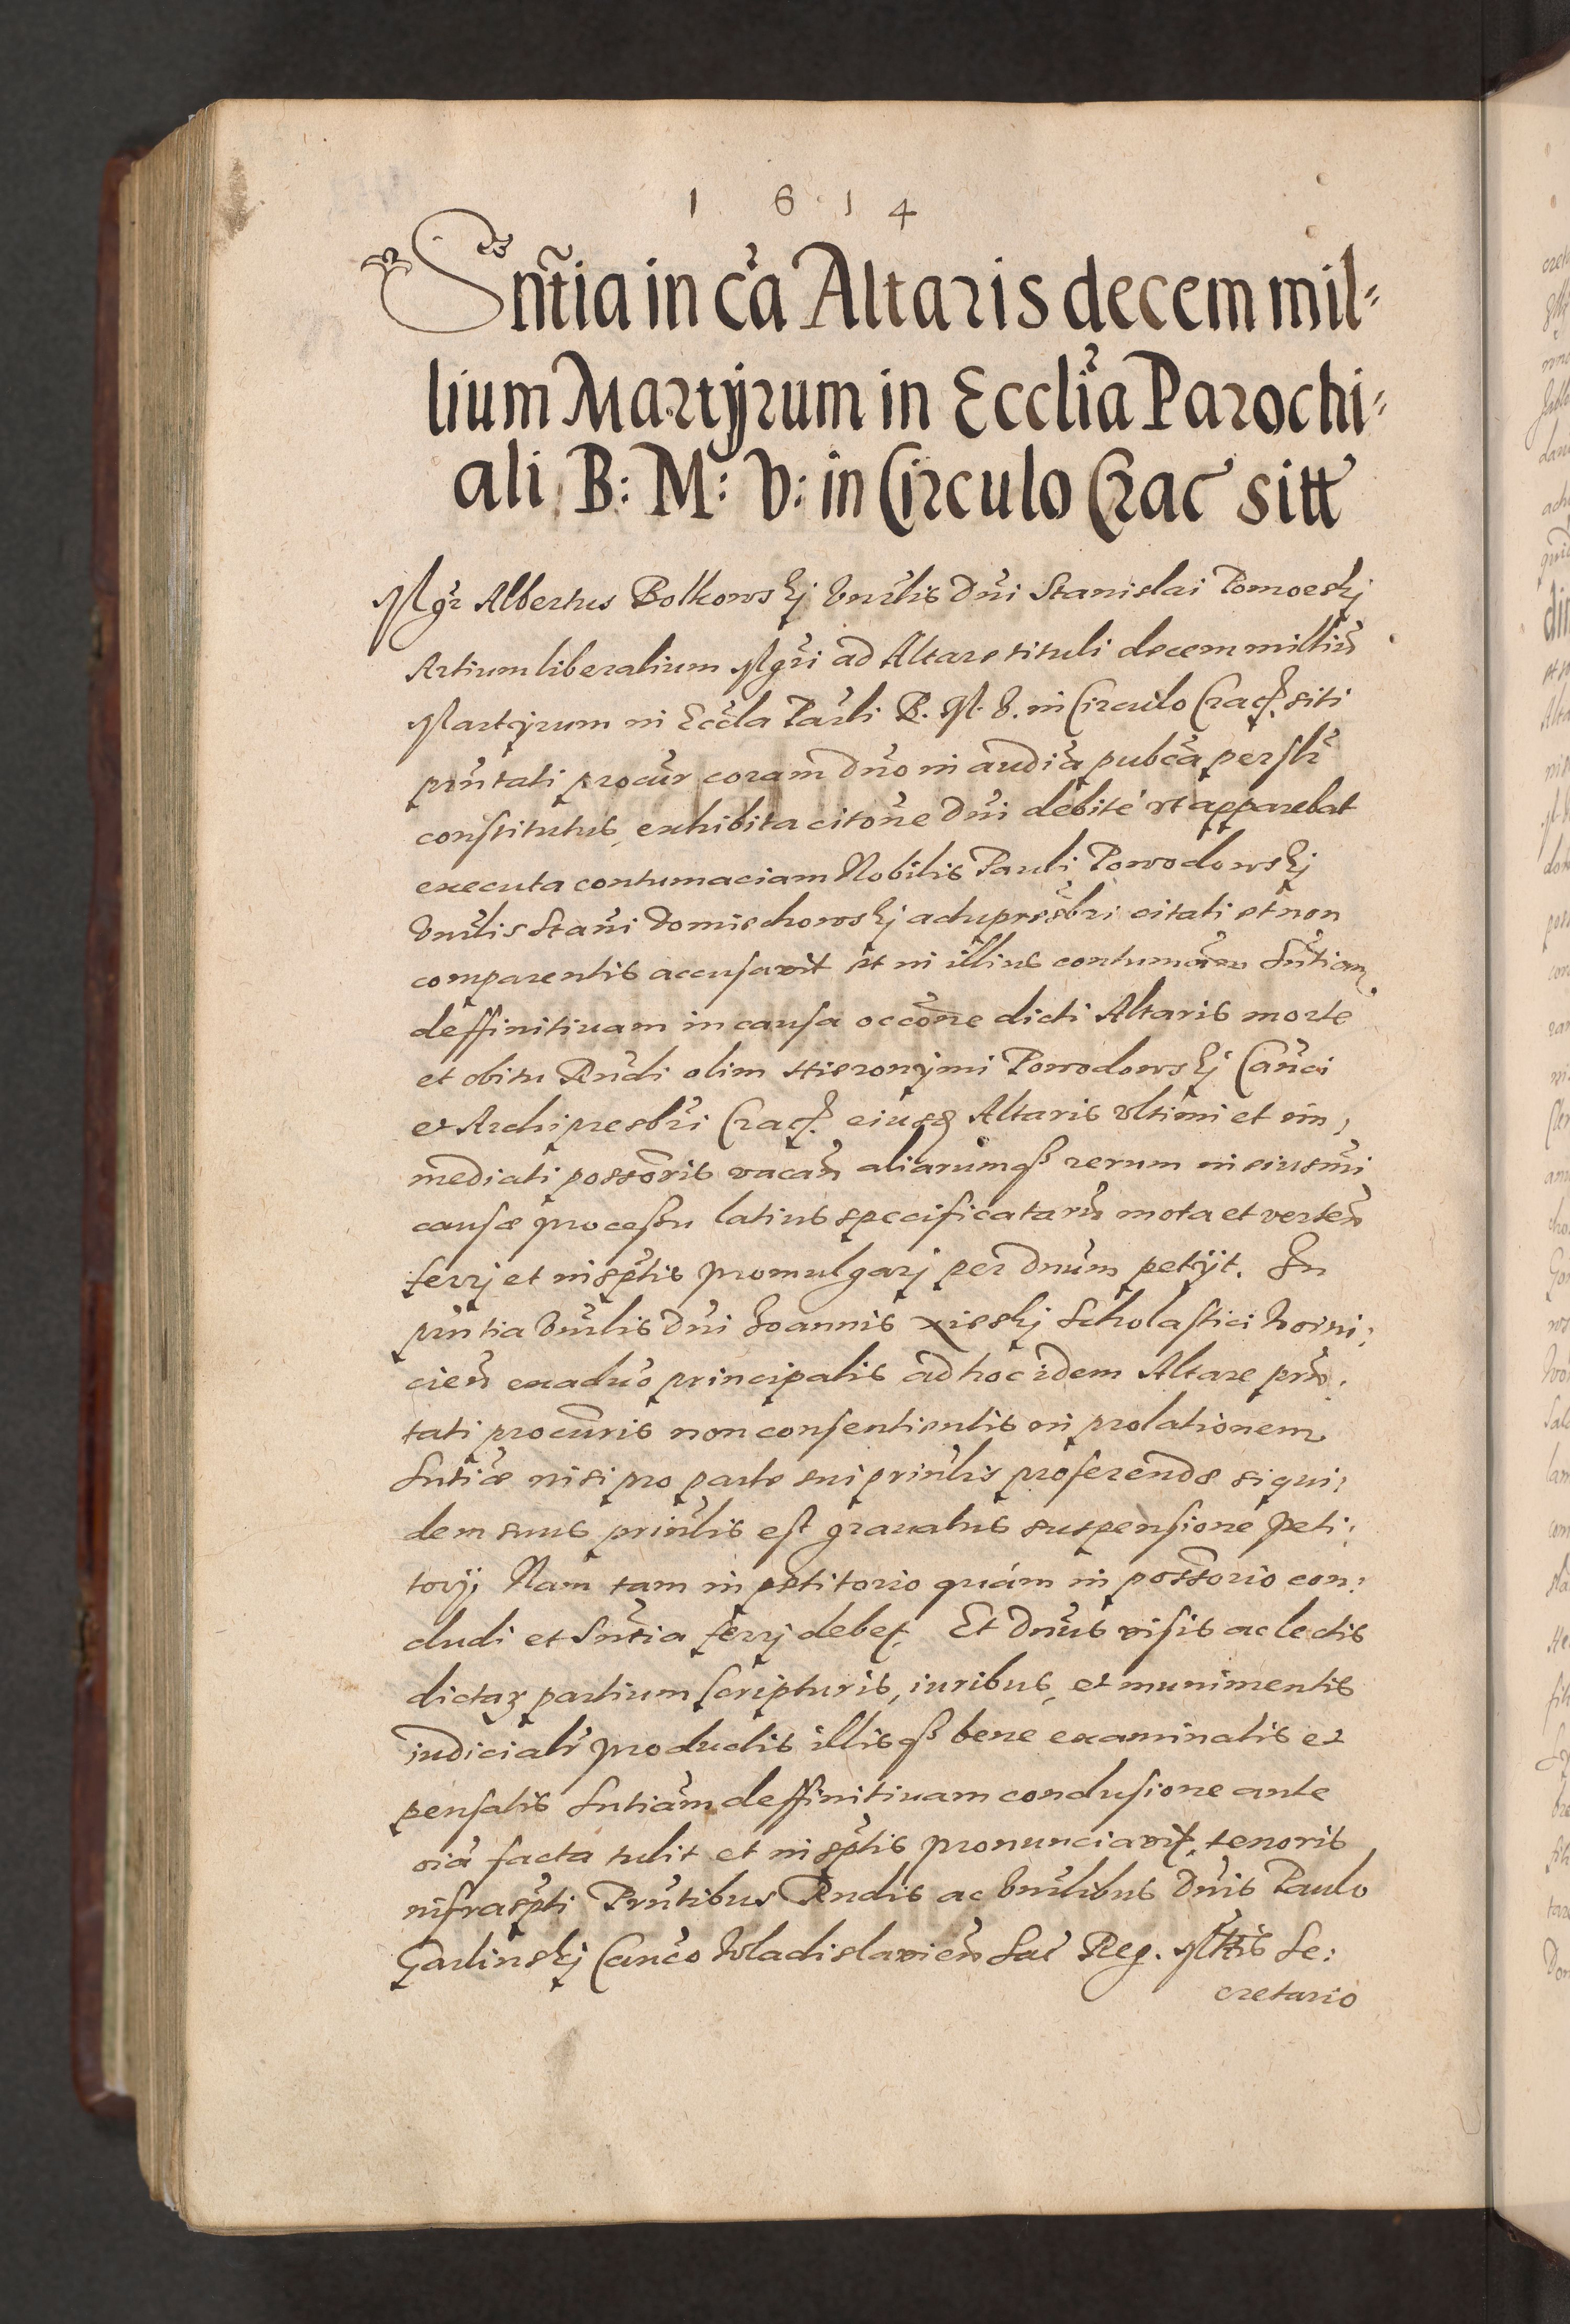 1 6 1 4
Sñtia in cã Altaris decem mil=
lium Martÿrum in Eccliã Parochi=
ali B: M: V: in Circulo Crac sitt
Mgr Albertus Bolkowskj Vnrlis Dñi Stanislai
Artium liberalium Mgri ad Altare tituli decem milliũ
Martÿrum in Eccla Parli B. M. V. in Circulo Crac. siti
pñtati procur coram dño in audiã pubcã persłr
constitutus, exhibita citõne Dñi debitè vt apparebat
executa contumaciam Nobilis Pauli Powodowskj
Vnrlis Stani Domiechowskj adupresbri citati et non
comparentis accusavit et in illius contumãm Sñtiam
deffinitiuam in causa occõne dicti Altaris morte
et obitu Rndi olim Hieronÿmi Powodowskj Canci
et Archipresbri Crac. eiusq Altaris vltimi et im,
mediati possoris vacañ aliarumqß rerum in eiusmi
causæ processu latius specificatarũ mota et verteñ
ferrj et in sptis promulgarj per Dnum petÿt. In
pñtia Vnrlis Dñi Joannis Scholastici Woÿni:
cieñ exaduo principalis ad hoc idem Altare prñ.
tati procuris non consentientis in prolationem
Sntiæ nisi pro parte sui prinlis proferendæ siqui:
dem suus prinlis est grauatus suspensione peti:
torij, Nam tam in petitorio quàm in possorio con:
cludi et Sñtia ferrj debet. Et Dnus visis ac lectis
dictaꝝ partium scripturis, iuribus, et munimentis
iudicialr productis illisqß bene examinatis et
pensatis Sntiãm deffinitiuam conclusione ante
oiã facta tulit et in sptis pronunciavit, tenoris
infraspti Pñtibus Rndis ac Vnrlibus Dñis Paulo
Garlinskj Canco Wladislavieñ Sac Reg. Mttis Se:
cretario